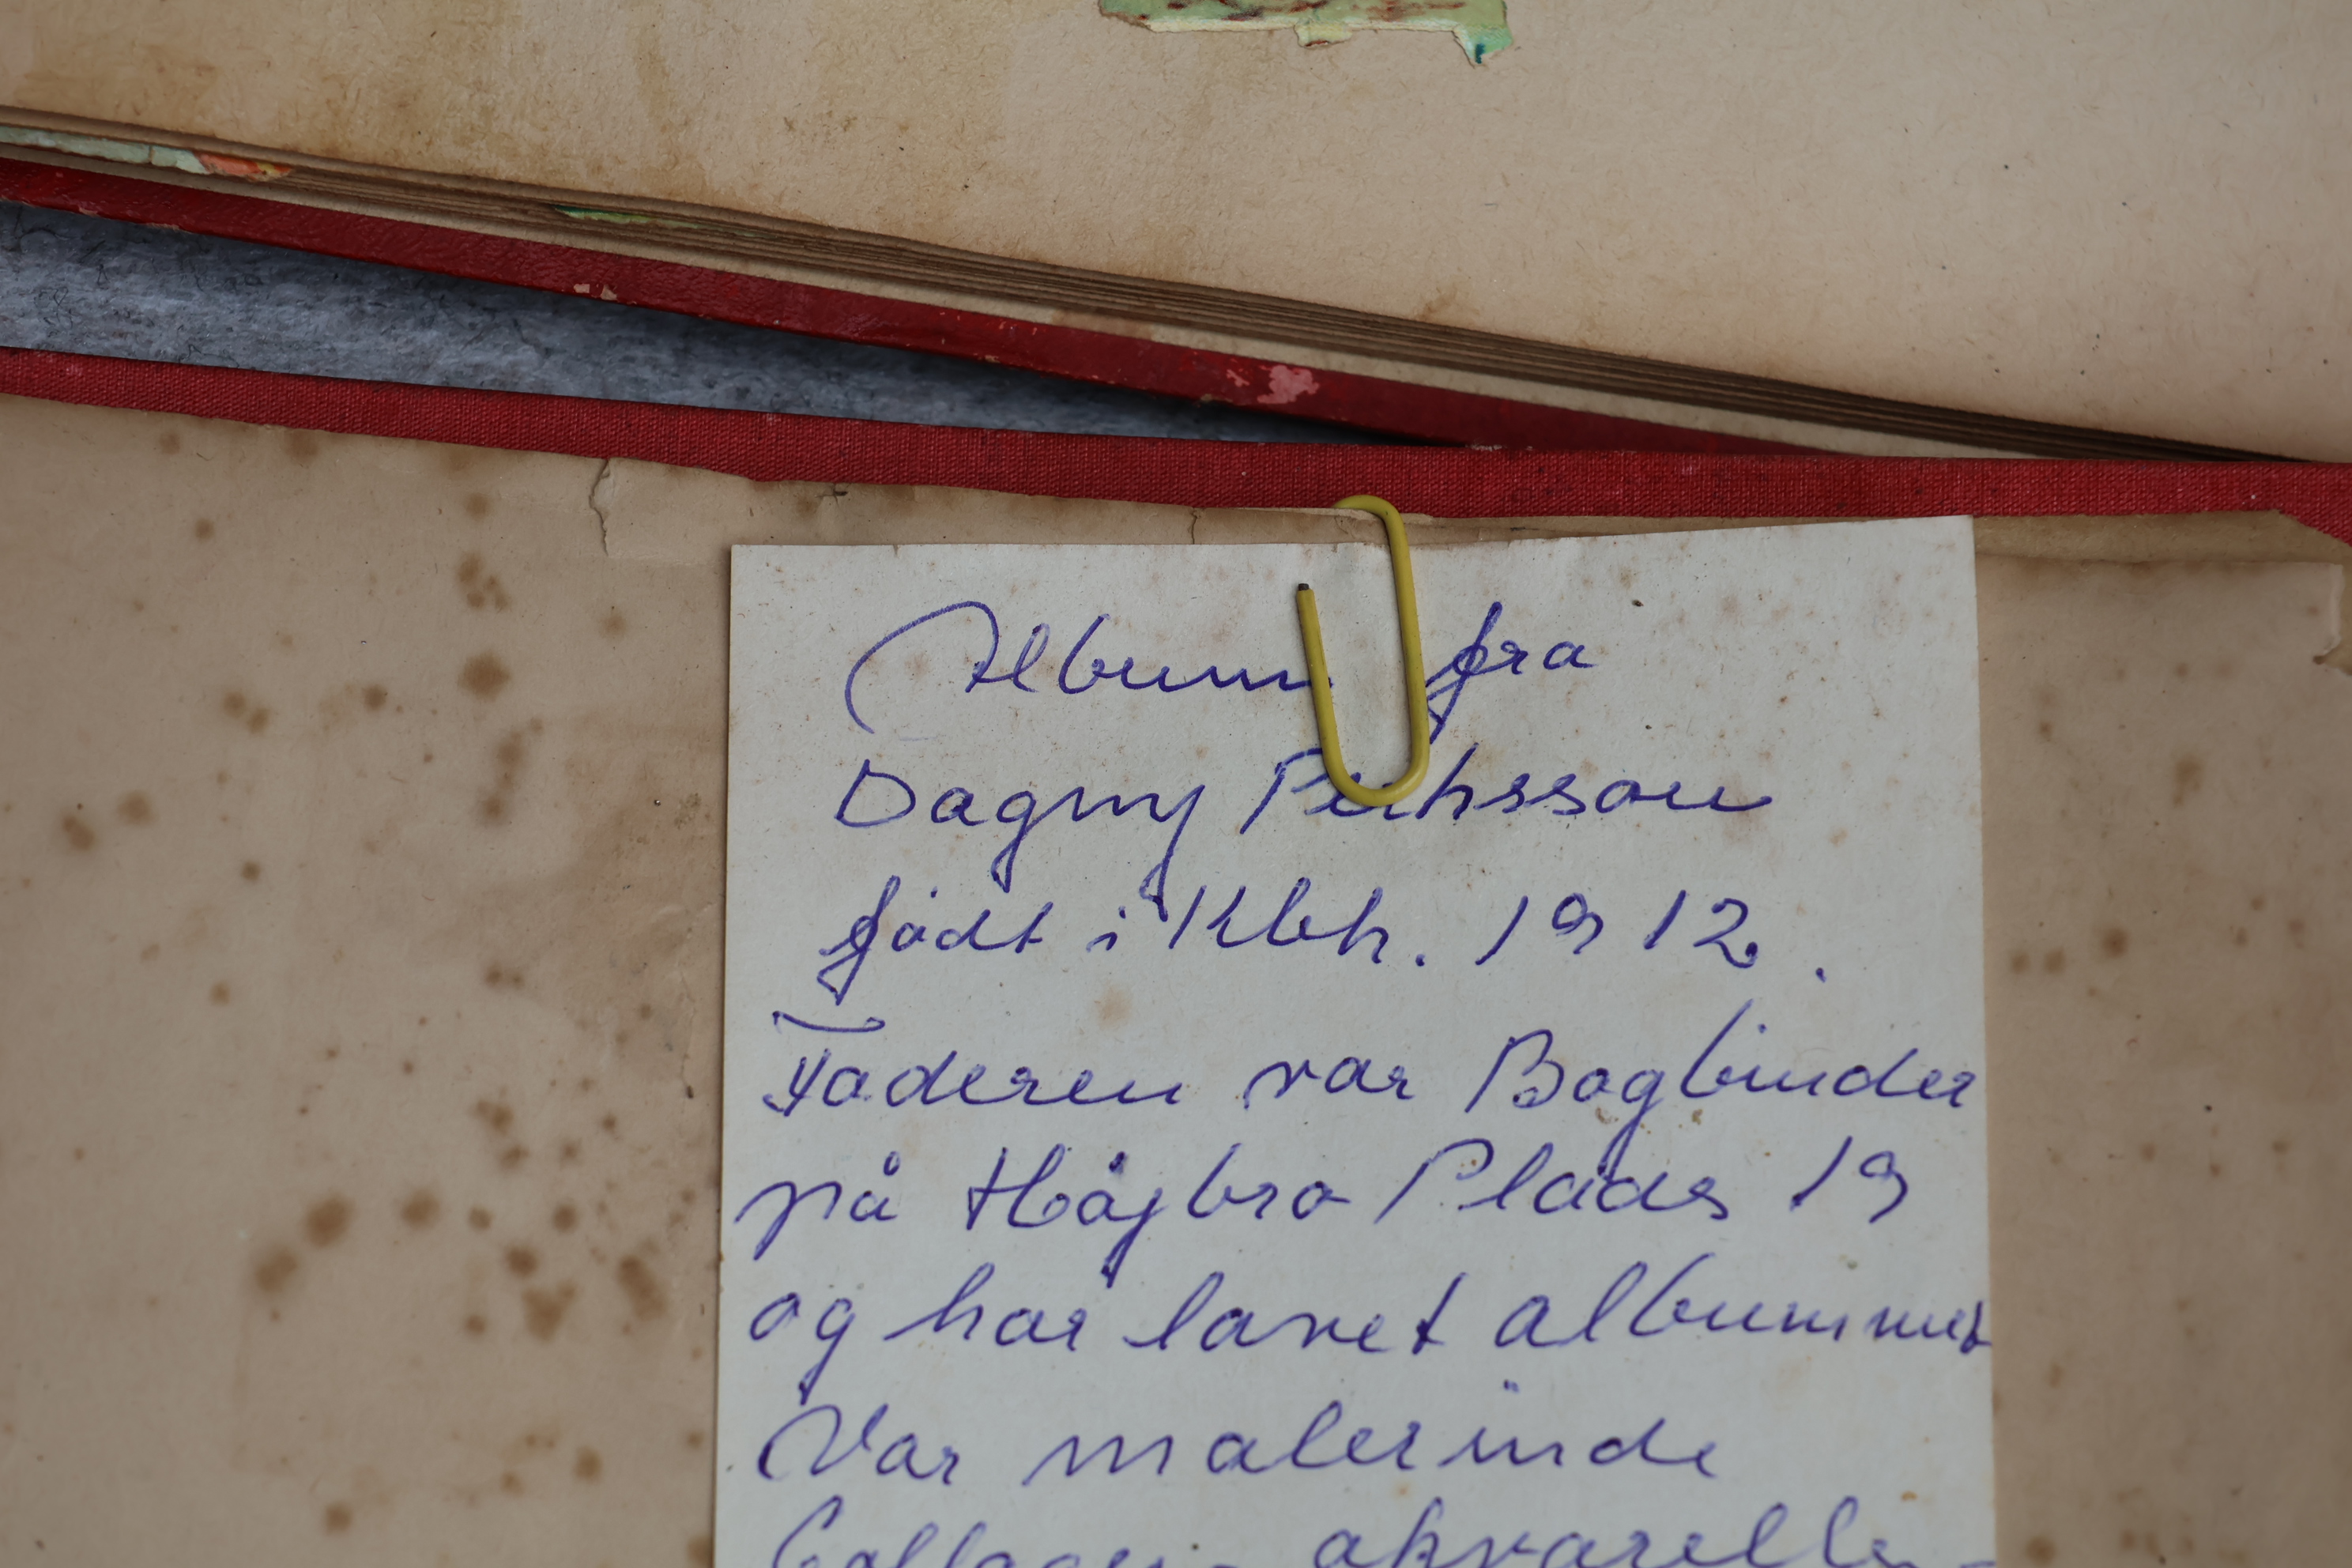 Album fra
Dagny
født i Kbh. 1912.
Faderen var Bogbinder
på Højbro Plads 19
og har lavet albummet
Var malerinde
Collager - akvareller -